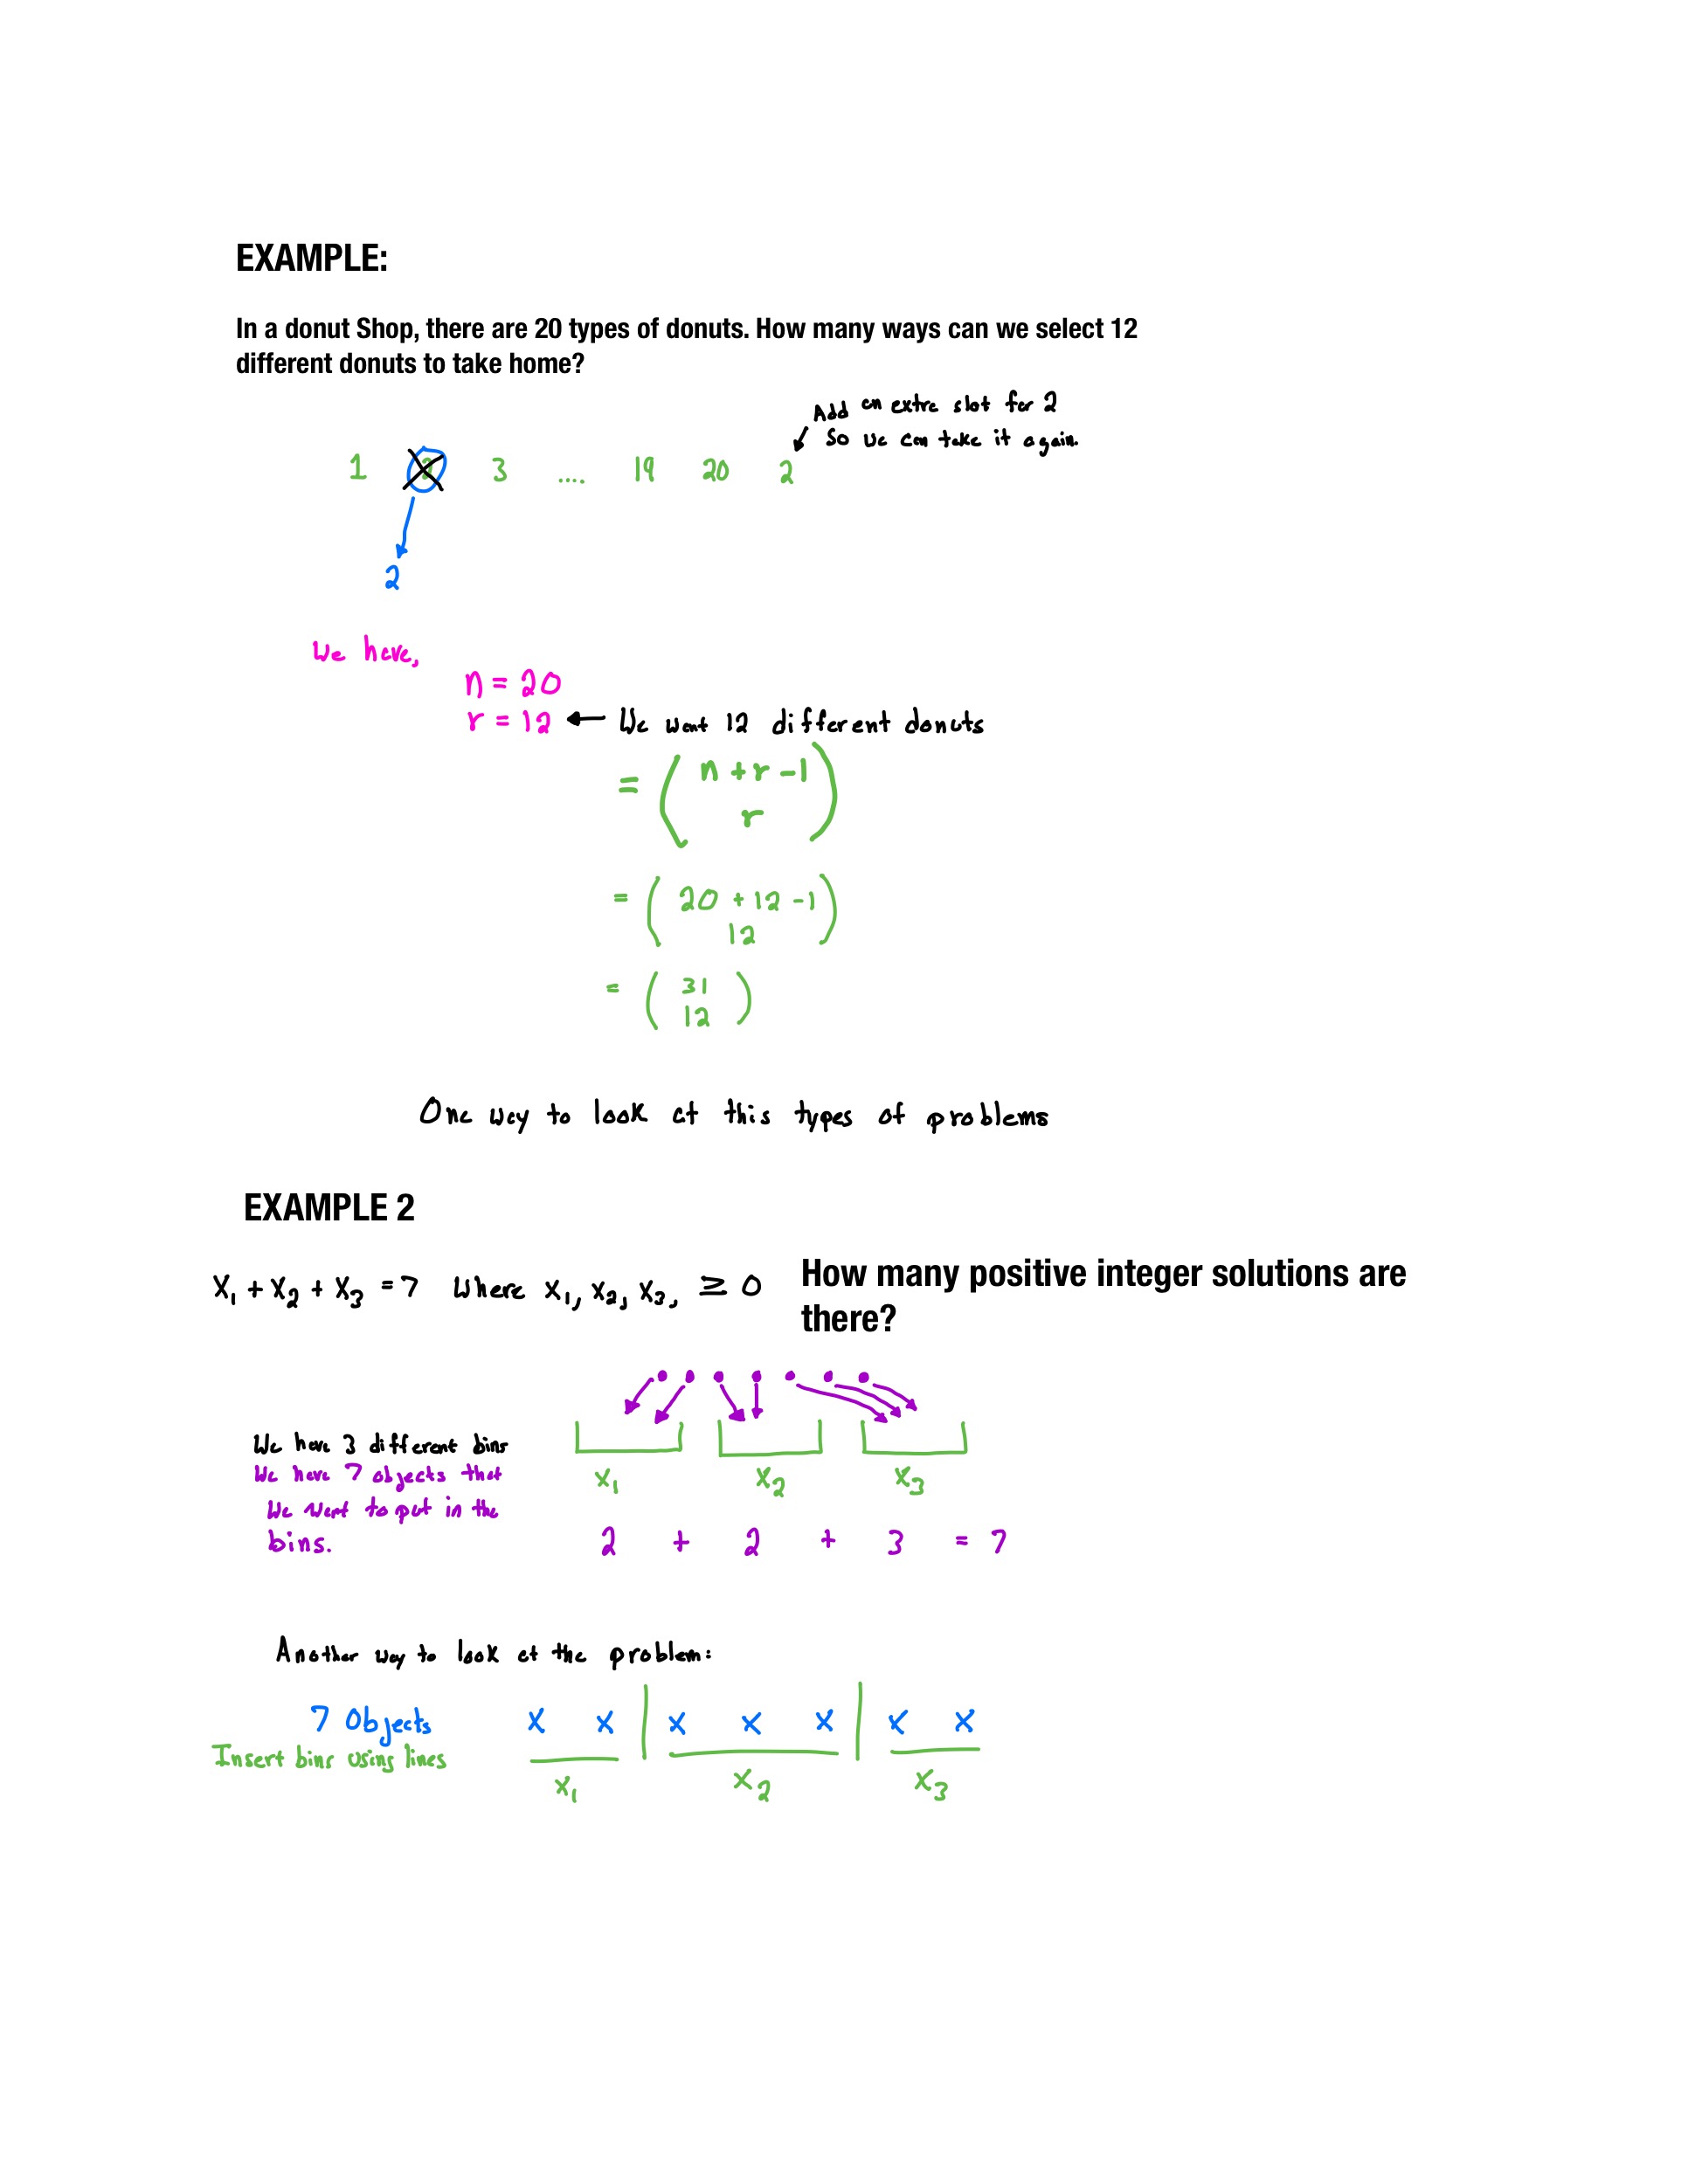 EXAMPLE:
In a donut Shop, there are 20 types of donuts. How many ways can we select 12
different donuts to take home?
Add an extra slot for 2
So we can take it again.
1 2 3 .... 19 20 2
2
We have,
n = 20
r = 12 ← We want 12 different donuts
= ( n + r - 1
r )
= ( 20 + 12 - 1
12 )
= ( 31
12 )
One way to look at this types of problems
EXAMPLE 2
x₁ + x₂ + x₃ = 7 Where x₁, x₂, x₃, ≥ 0
How many positive integer solutions are
there?
We have 3 different bins
We have 7 objects that
We want to put in the
bins.
x₁ x₂ x₃
2 + 2 + 3 = 7
Another way to look at the problem:
7 Objects x x | x x x | x x
Insert bins using lines
x₁ x₂ x₃